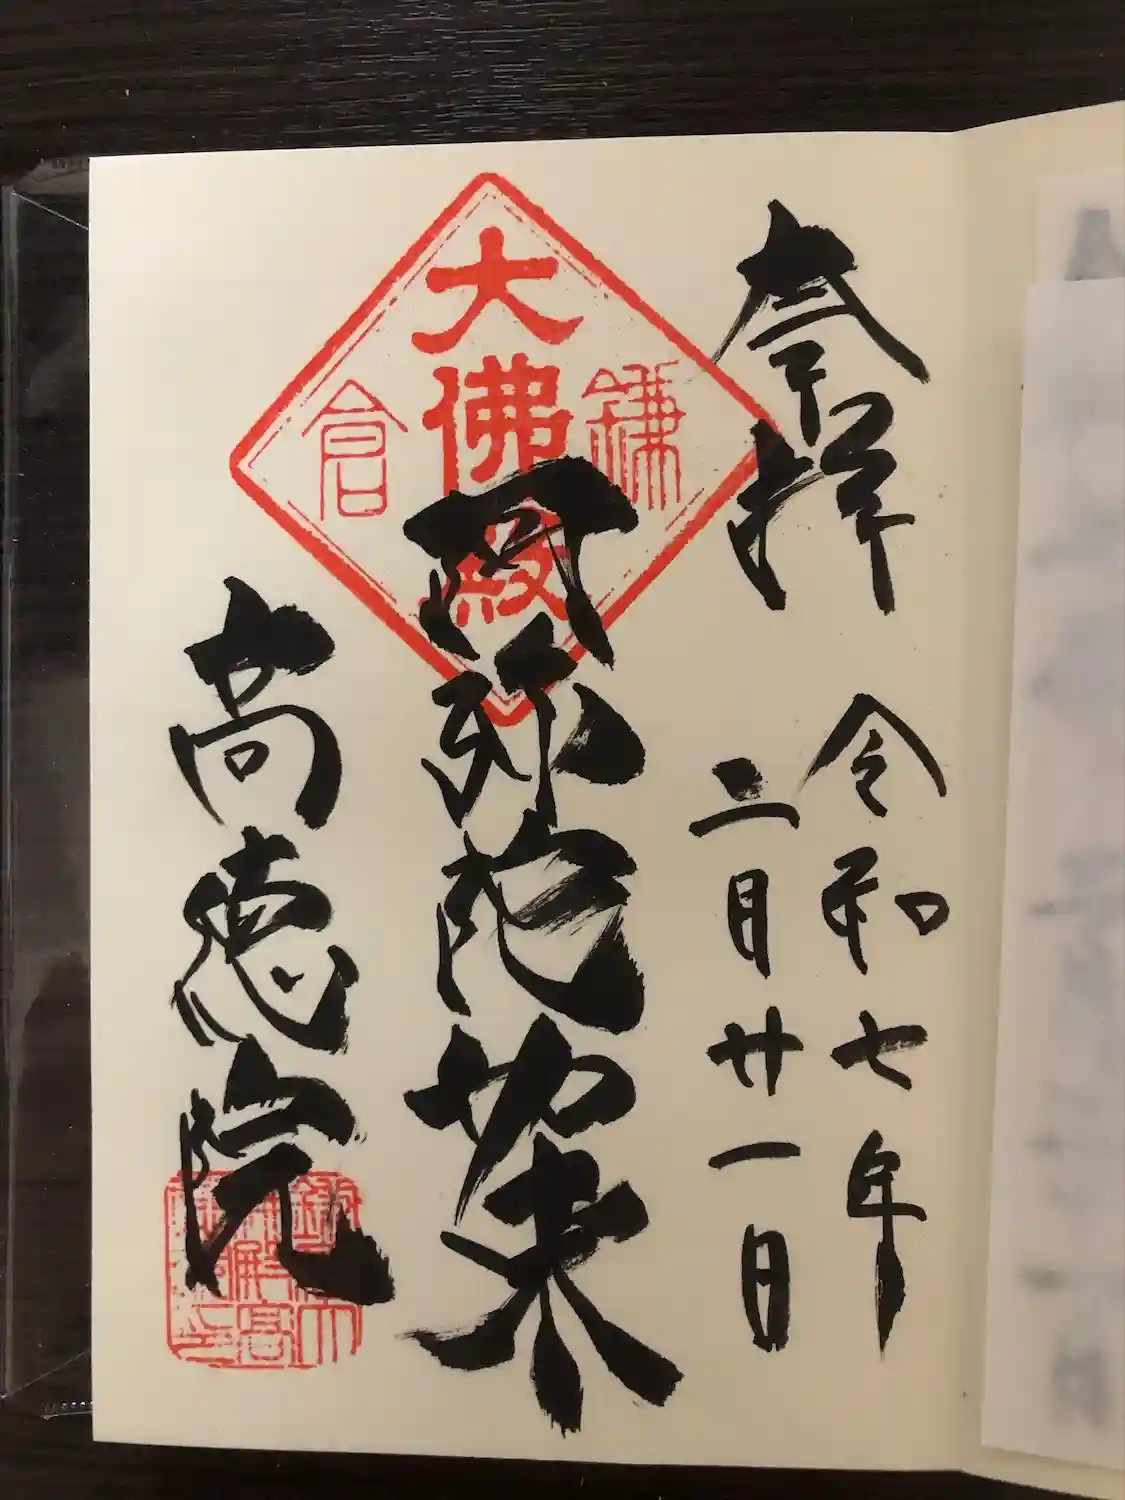 奉拝
令和七年
二月廿一日
鎌倉
大佛殿
阿弥陀如来
高徳院